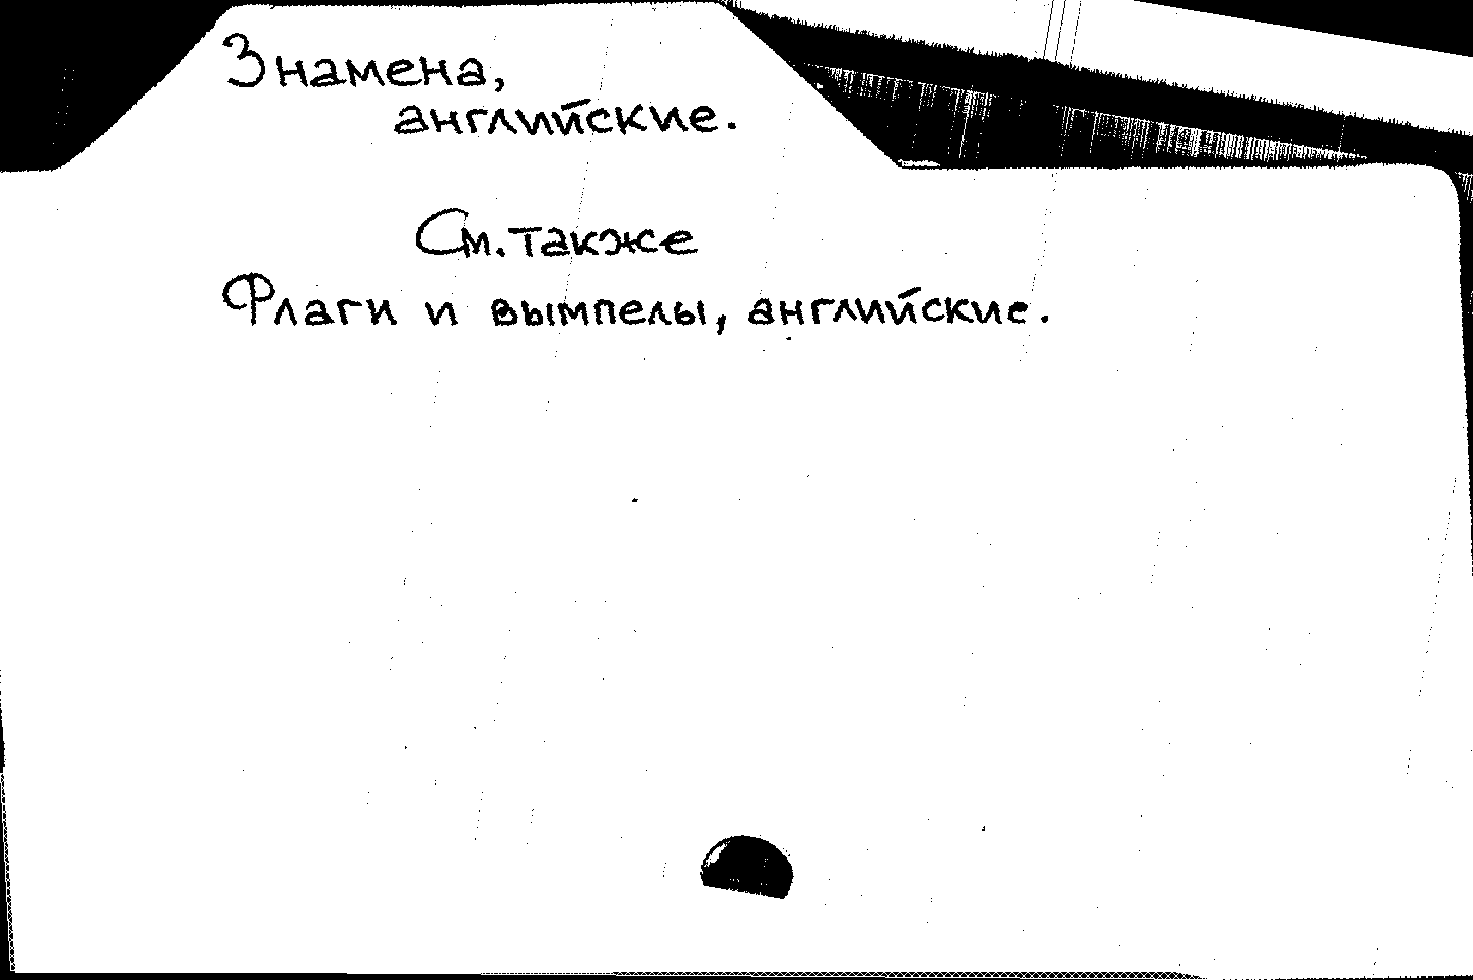 Знамена,
английские.
См. также
Флаги и вымпелы, английские.